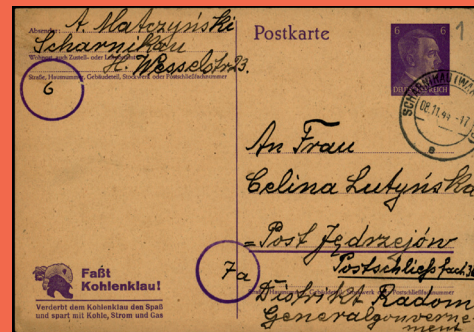 Absender: A. Matczyński
Scharnikau
Wohnort, auch Zustell- oder Leitpostamt
H. Wesselstr 23.
Straße, Hausnummer, Gebäudeteil, Stockwerk oder Postschließfachnummer
6
Postkarte
6 6
DEUTSCHES REICH
1
SCHARNIKAU (WA
08.11.44 -17
a
An Frau
Celina Lutyńska
Post Jędrzejów
Postschließfach 36
Straße, Hausnummer, Gebäudeteil, Stockwerk oder Postschließfachnummer
7a
Distrikt Radom
Generalgouverne
ment
Faßt
Kohlenklau!
Verderbt dem Kohlenklau den Spaß
und spart mit Kohle, Strom und Gas